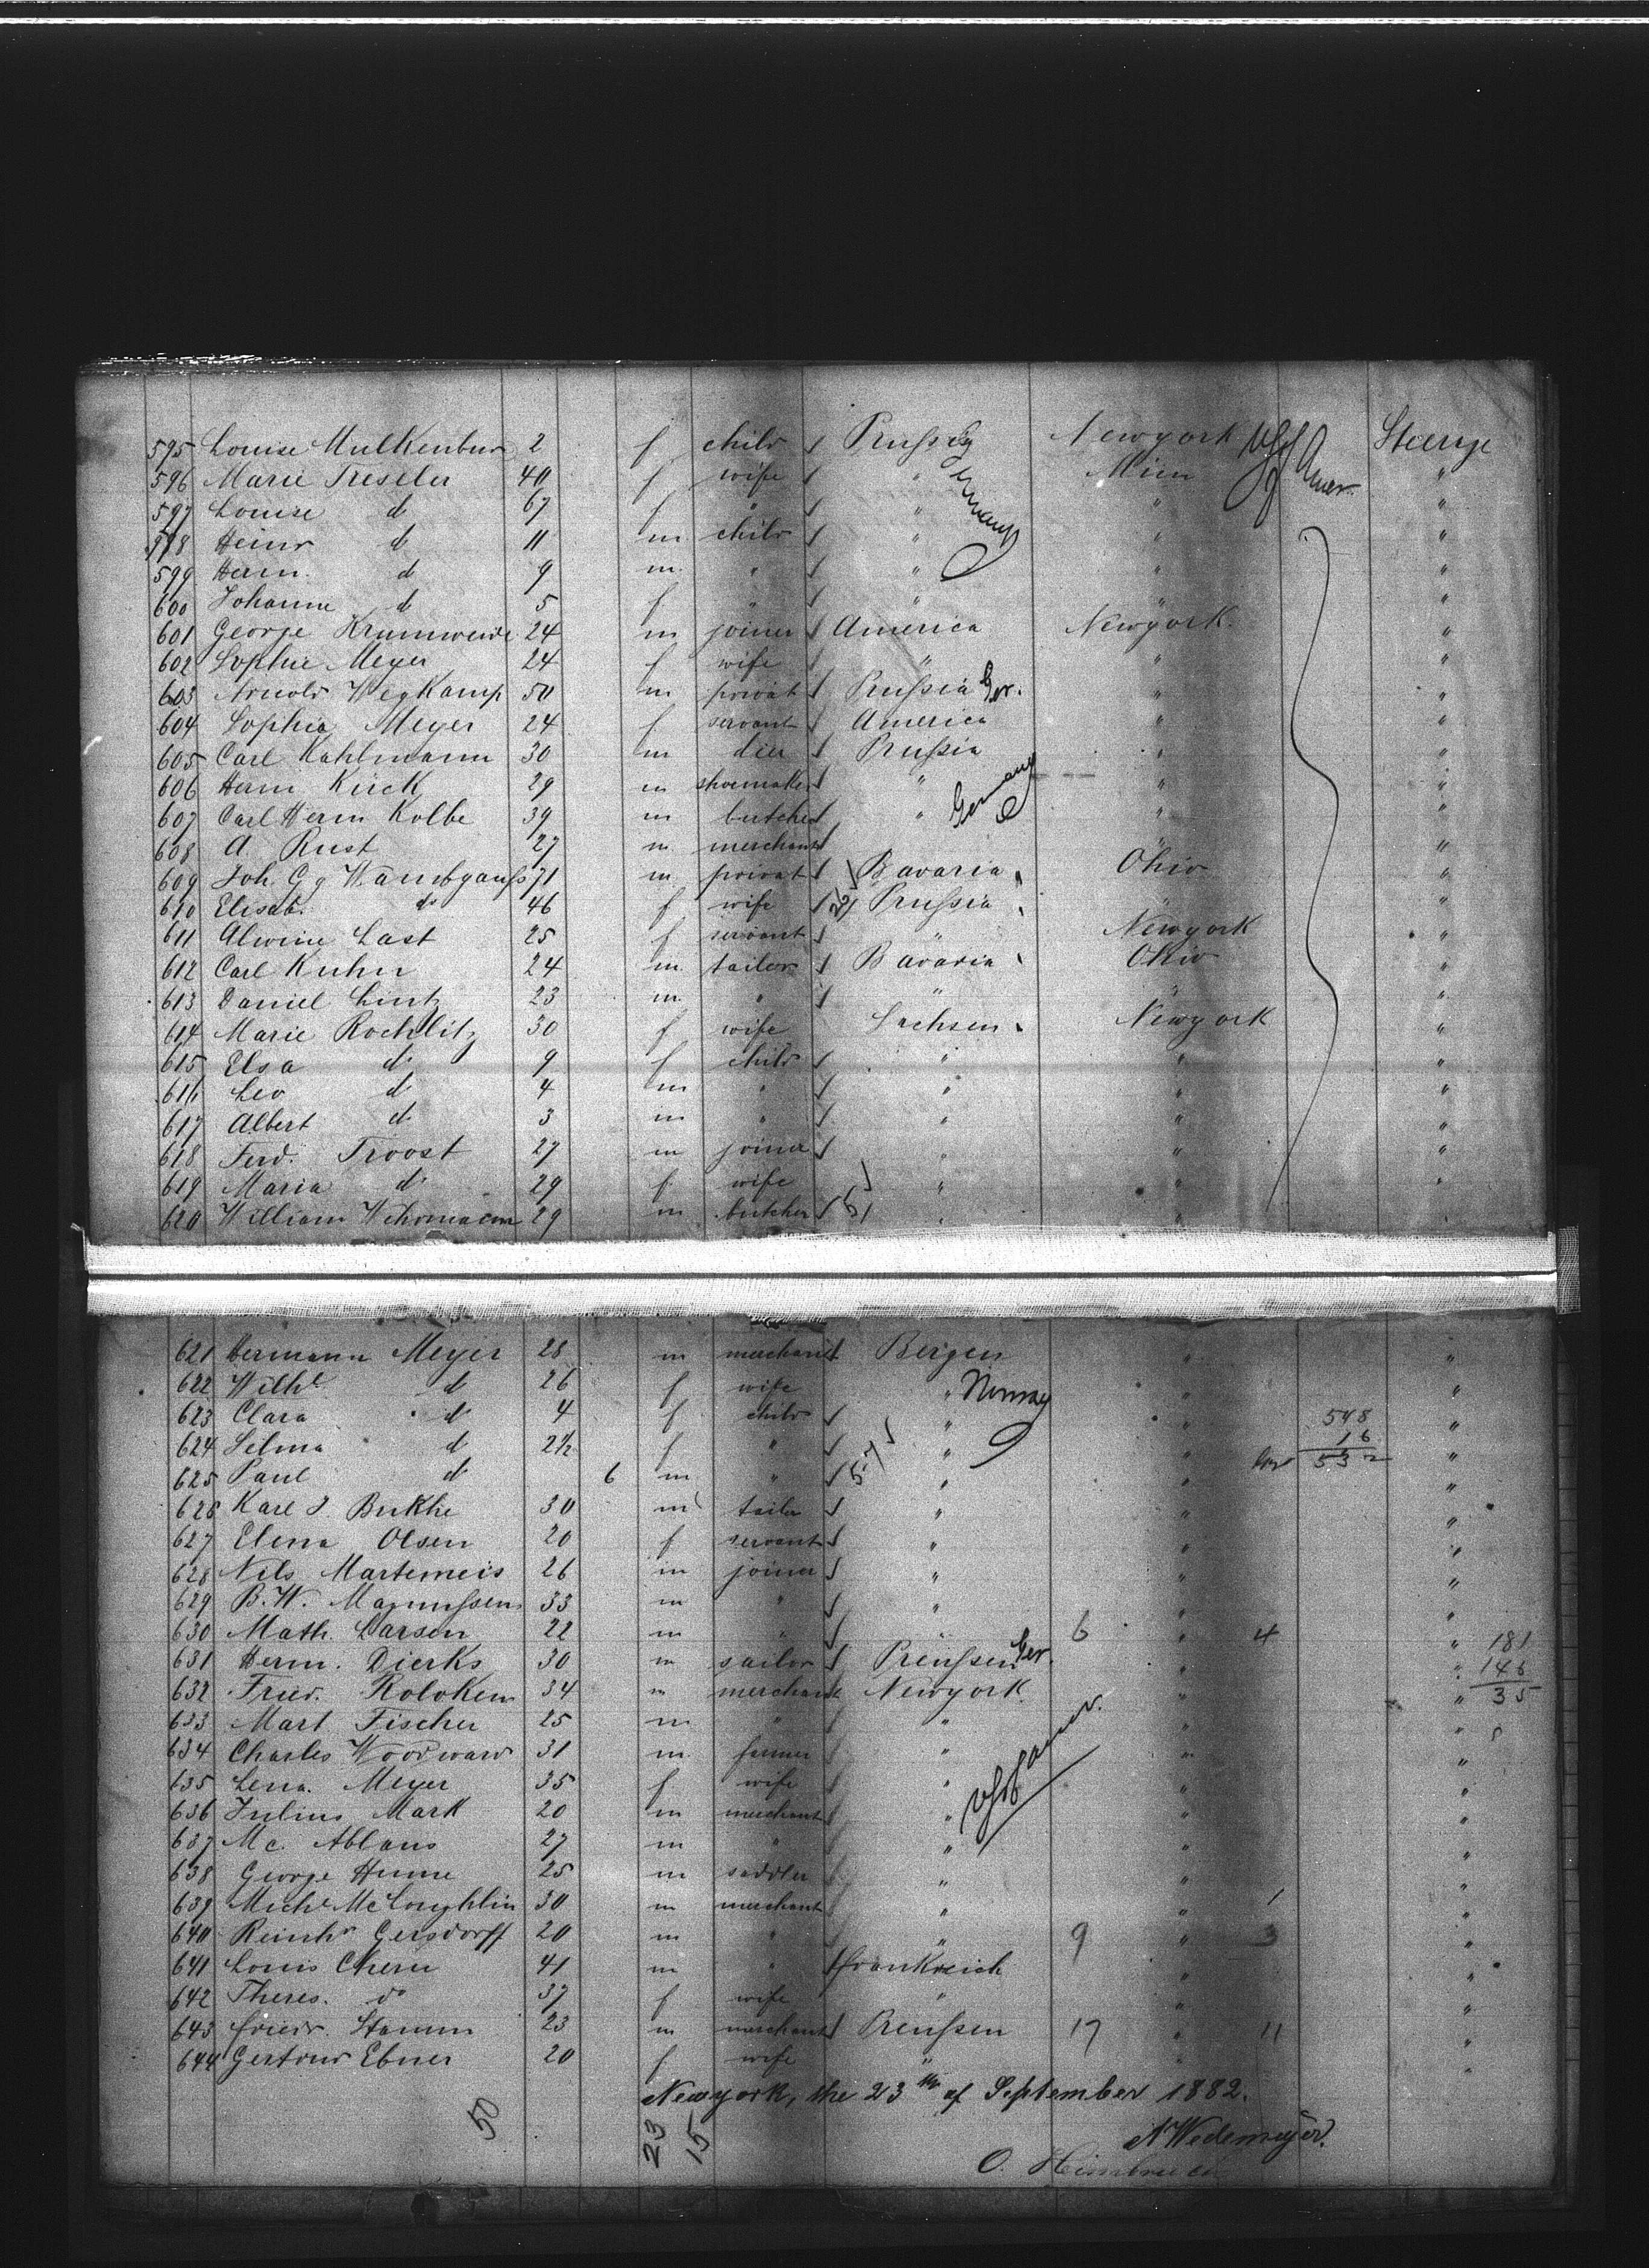 595 Louise Mulkenbur 2 f child Prussia Newyork Steerge
596 Marie Treseler 40 f wife " Minn "
597 Louise d 67 f " " " "
598 Heinr d 11 m child " " "
599 Herm. d 9 m. " " " "
600 Johanne d 5 f " " " "
601 George Krumweide 24 m joiner America Newyork. "
602 Sophie Meyer 24 f wife " " "
603 Arnold Wegkamp 50 m privat Prussia Ger. " "
604 Sophia Meyer 24 f servant America " "
605 Carl Kahlmann 30 m dier Prussia " "
606 Herm Kirck 29 m shoemaker " Germany " "
607 Carl Herm Kolbe 39 m butcher " " "
608 A Rust 27 m. merchant " "
609 Joh. Gg Wambganss 71 m. privat Bavaria Ohio "
610 Elisab. do 46 f wife Prussia " "
611 Alwine Last 25 f servant " Newyork "
612 Carl Kuhn 24 m. tailor Bavaria Ohio "
613 Daniel Lintz 23 m. " " " "
614 Marie Rochlitz 30 f wife Sachsen Newyork "
615 Elsa d 9 f child " " "
616 Leo d 4 m " " " "
617 Albert d 3 m " " " "
618 Ferd. Troost 27 m joiner " " "
619 Maria d. 29 f. wife " " "
620 William 29 m butcher " " "
621 Hermann Meyer 28 m merchant Bergen " "
622 Wilhe d 26 f wife " Norway " "
623 Clara d 4 f child " " 548 "
624 Selma d 2½ f " " " 16 "
625 Paul d 6 m " " " 532 "
626 Karl J. 30 m tailor " " "
627 Elena Olsen 20 f servant " " "
628 Nils Marteineis 26 m joiner " " "
629 B.W. Magnussen 33 m " " " "
630 Math. Larsen 22 m " " 6 " 4 "
631 Herm. Dierks 30 m sailor Preussen Ger. " " 181
632 Fried. Roloken 34 m merchant Newyork " " 146
633 Mart Fischer 25 m " " " " 35
634 Charles Woodward 31 m. farmer " " "
635 Lena. Meyer 35 f wife " " "
636 Julius Mark 20 m merchant " " "
637 Mc. Ablans 27 m " " " "
638 George Hume 25 m saddler " " "
639 Michl McLoughlin 30 m merchant " " 1 "
640 Reinhd Gersdorff 20 m " " 9 " 3 "
641 Louis 41 m " Frankreich " "
642 Theres. do 37 f wife " " "
643 Friedr. Stamm 23 m merchant Preussen 17 " 11 "
644 Gertrud Ebner 20 f wife " " "
Newyork, the 23th of September 1882.
50 23 15
A Wedemeyer.
O.